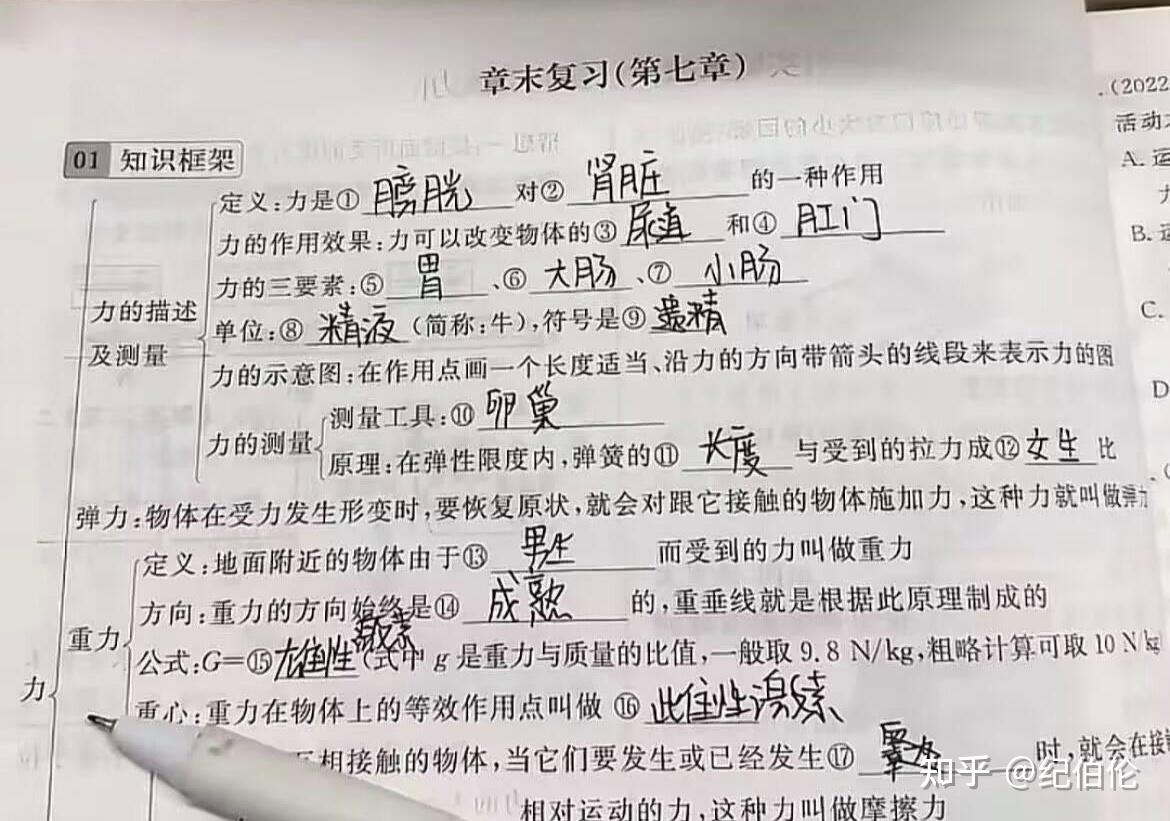 章末复习(第七章)
(2022
活动
01 知识框架
A. 运
定义:力是① 膀胱 对② 肾脏 的一种作用
力
力的作用效果:力可以改变物体的③ 尿道 和④ 肛门
B. 运
力的三要素:⑤ 胃 、⑥ 大肠 、⑦ 小肠
C.
力的描述及测量
单位:⑧ 精液 (简称:牛),符号是⑨ 遗精
力的示意图:在作用点画一个长度适当、沿力的方向带箭头的线段来表示力的图
D
力的测量
测量工具:⑩ 卵巢
原理:在弹性限度内,弹簧的⑪ 长度 与受到的拉力成⑫ 女生 比
弹力:物体在受力发生形变时,要恢复原状,就会对跟它接触的物体施加力,这种力就叫做弹力
定义:地面附近的物体由于⑬ 男生 而受到的力叫做重力
方向:重力的方向始终是⑭ 成熟 的,重垂线就是根据此原理制成的
重力
公式:G=⑮ 雄性激素 (式中 g 是重力与质量的比值,一般取 9.8 N/kg,粗略计算可取 10 N/kg
力
重心:重力在物体上的等效作用点叫做 ⑯ 此住性激素
互相接触的物体,当它们要发生或已经发生⑰ 睾丸 时,就会在接
相对运动的力,这种力叫做摩擦力
知乎 @纪伯伦